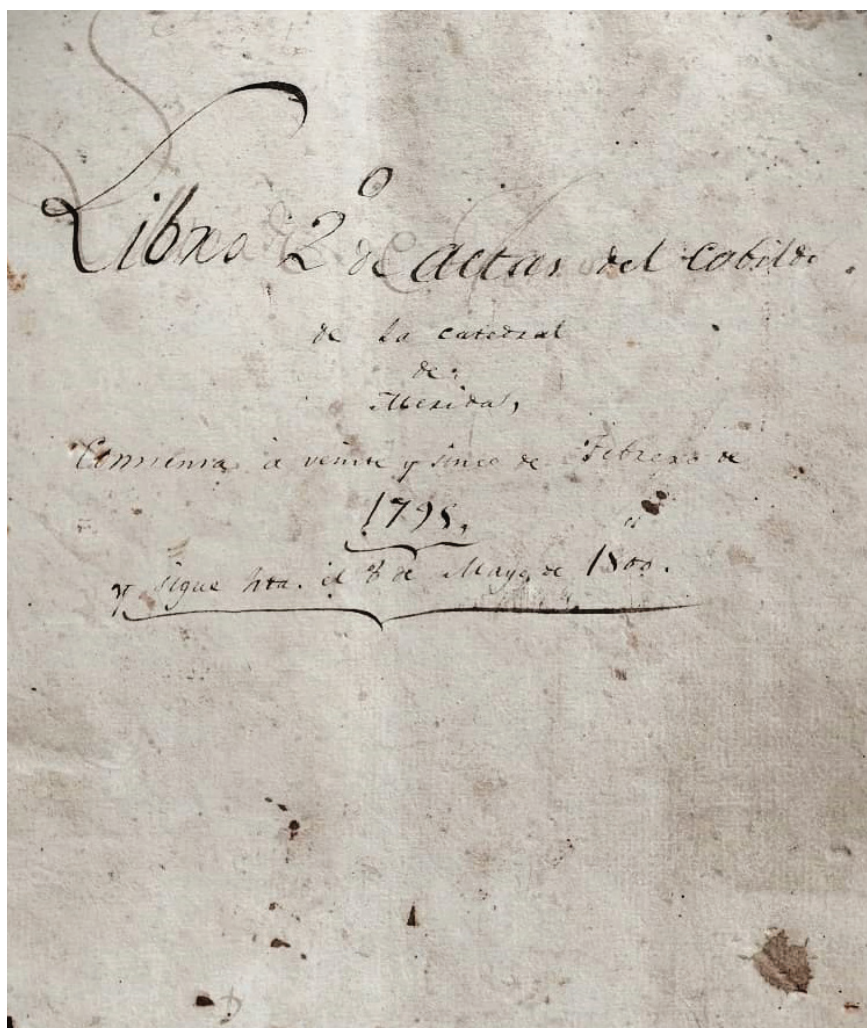 Libro 2º de actas del Cabildo.
de la catedral
de
Merida,
Comiensa à veinte y sinco de Febrero de
1795,
y sigue hta. el 8 de Mayo de 1800.